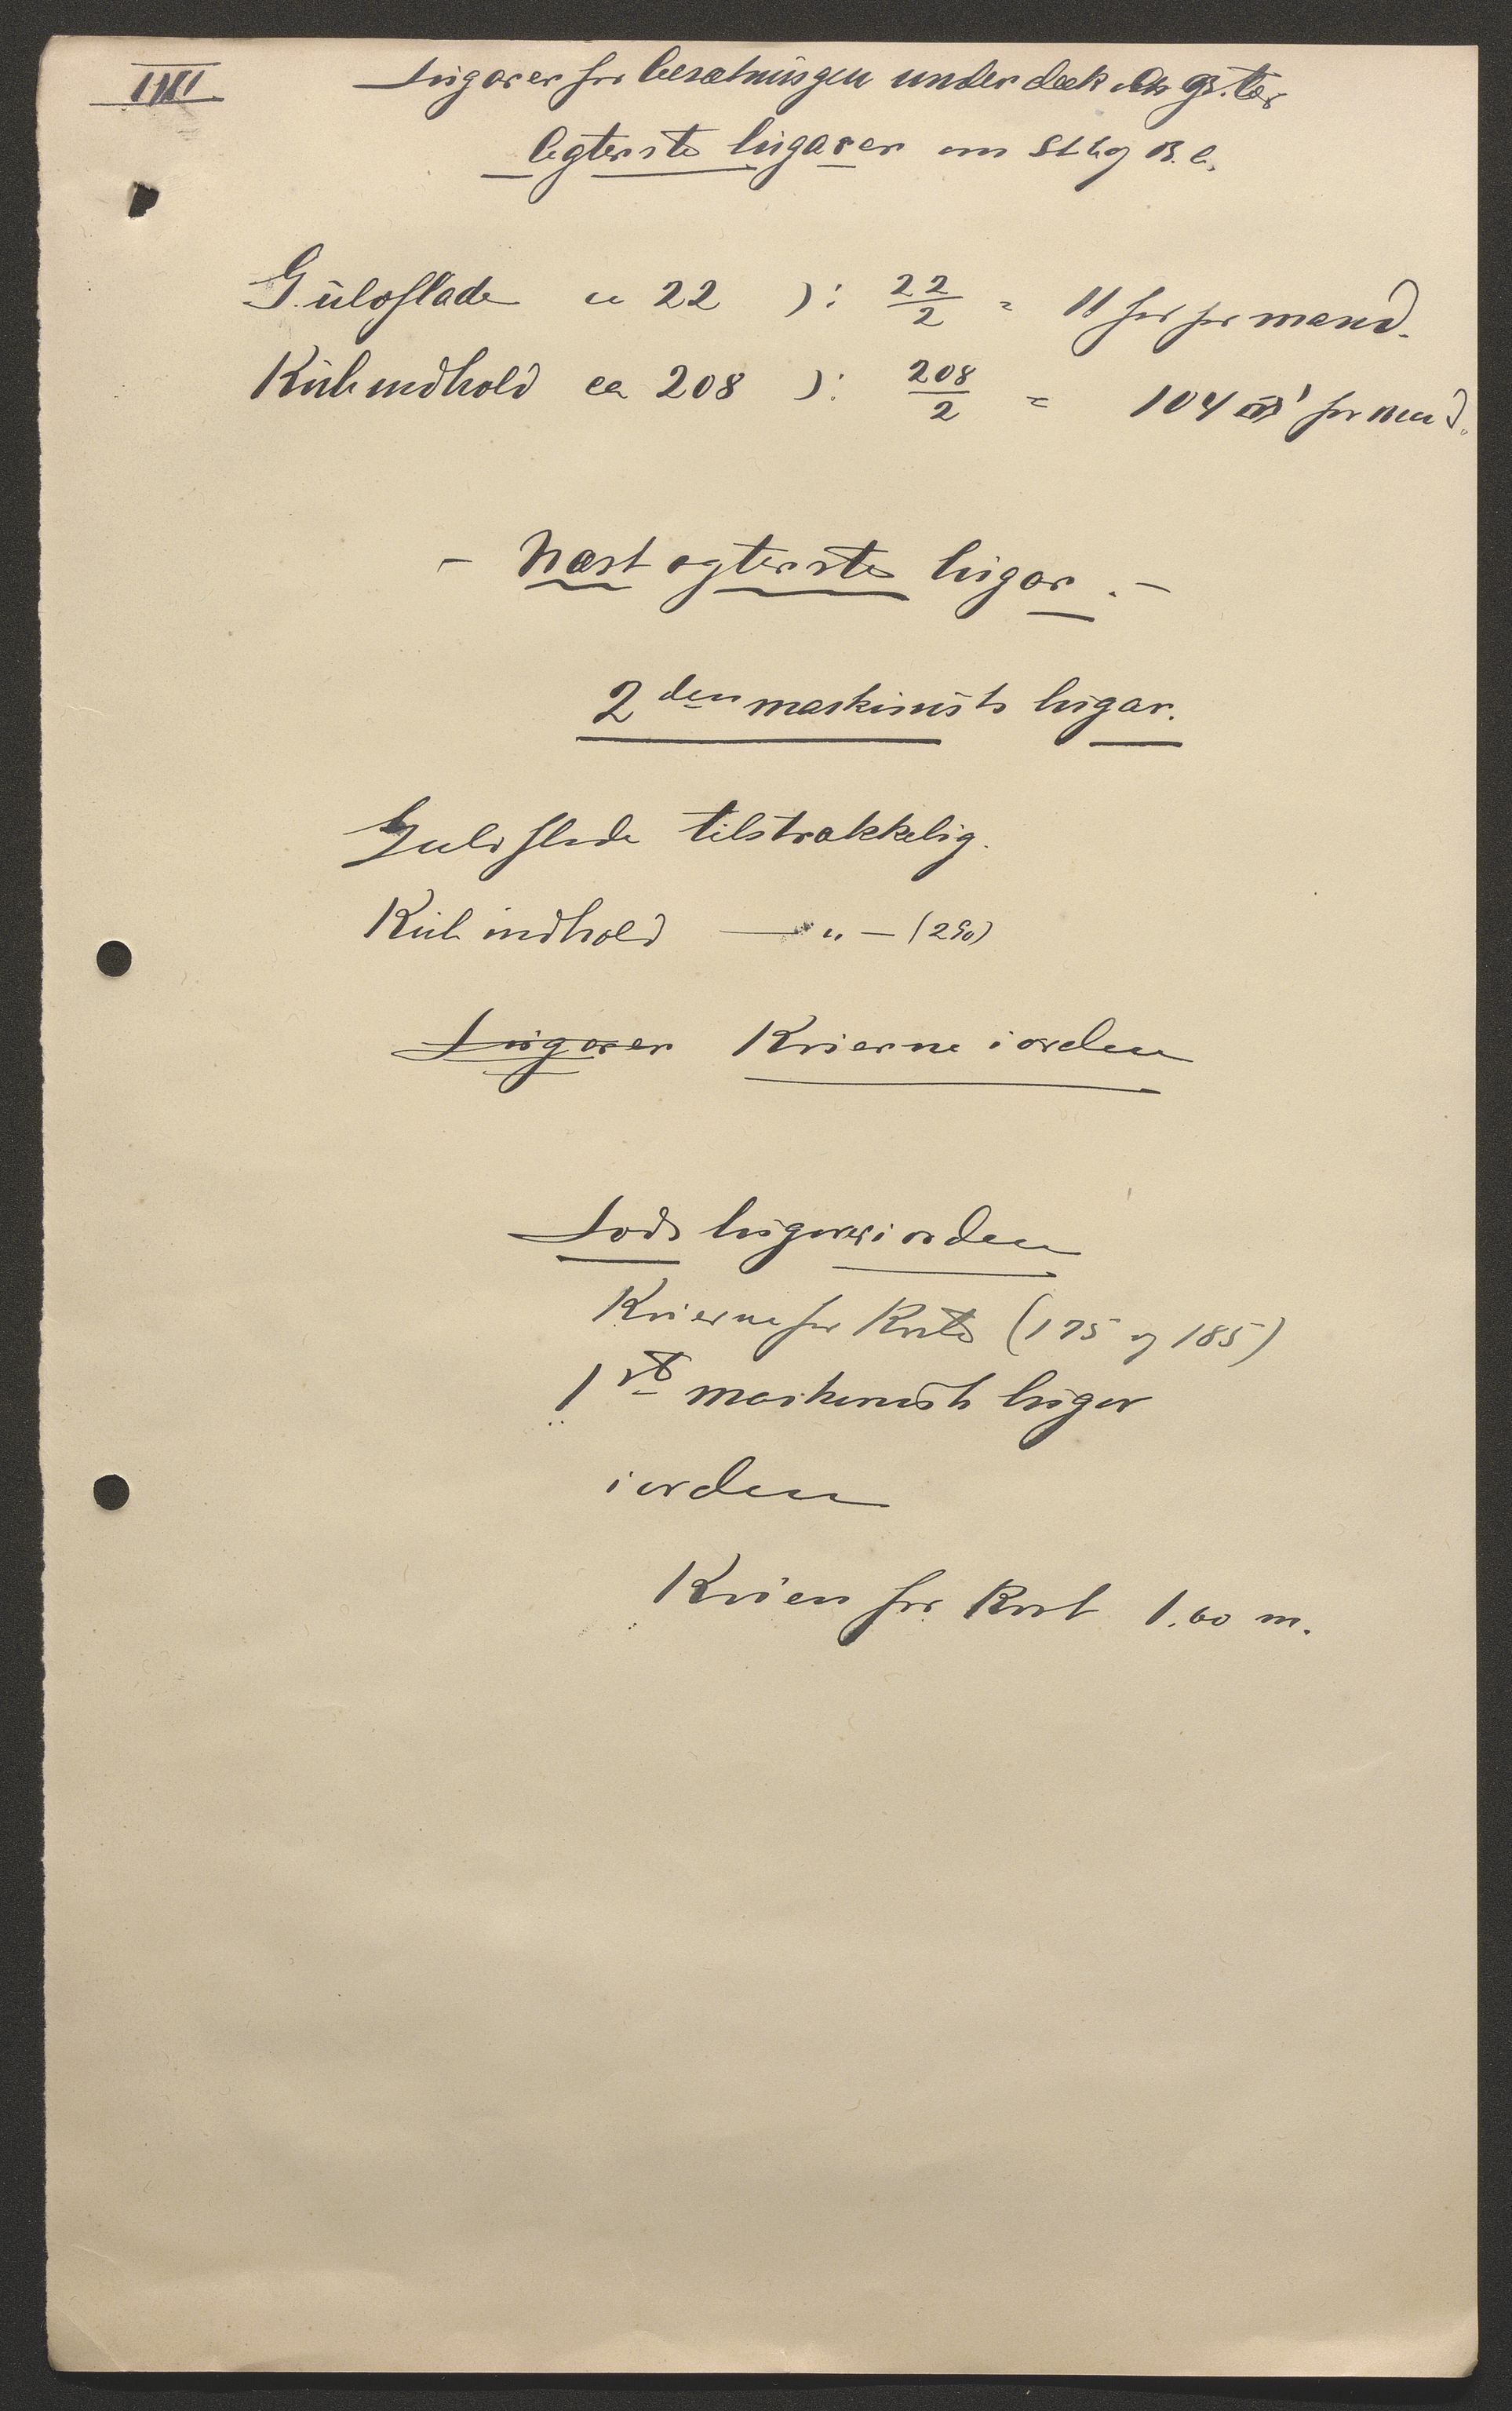 IIII
Lugarer for besætningen under dæk agter
Agterste lugarer om St. b. og B. b.
Gulvflade ca 22 ): 22/2 = 11 for pr mand.
Kub indhold ca 208 ): 208/2 = 104 for mand.
- Næst agterste lugar. -
2den maskinists lugar.
Gulvflade tilstrækkelig.
Kub indhold — " — (290)
Lugarer Køierne i orden
Lods lugarer i orden
Køierne for korte (175 og 185)
1ste maskinists lugar
i orden
Køien for kort 1.60 m.